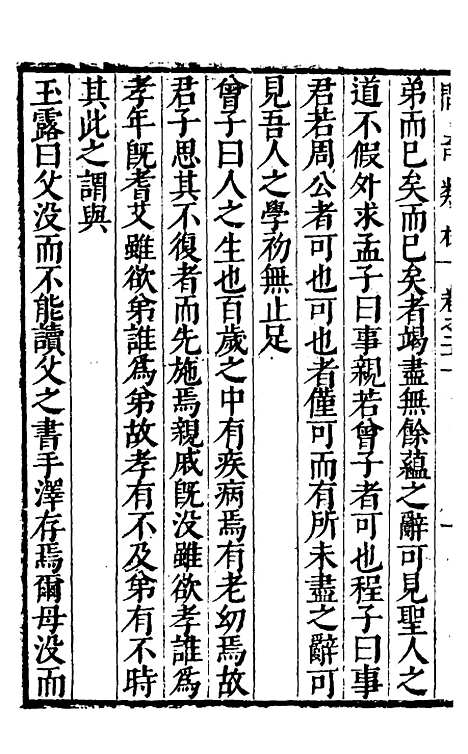 弟而已矣而已矣者竭盡無餘蘊之辭可見聖人之
道不假外求孟子曰事親若曾子者可也程子曰事
君若周公者可也可也者僅可而有所未盡之辭可
見吾人之學初無止足
曾子曰人之生也百歲之中有疾病焉有老幼焉故
君子思其不復者而先施焉親戚旣没雖欲孝誰爲
孝年旣耆艾雖欲弟誰爲弟故孝有不及弟有不時
其此之謂與
玉露曰父没而不能讀父之書手澤存焉爾母没而